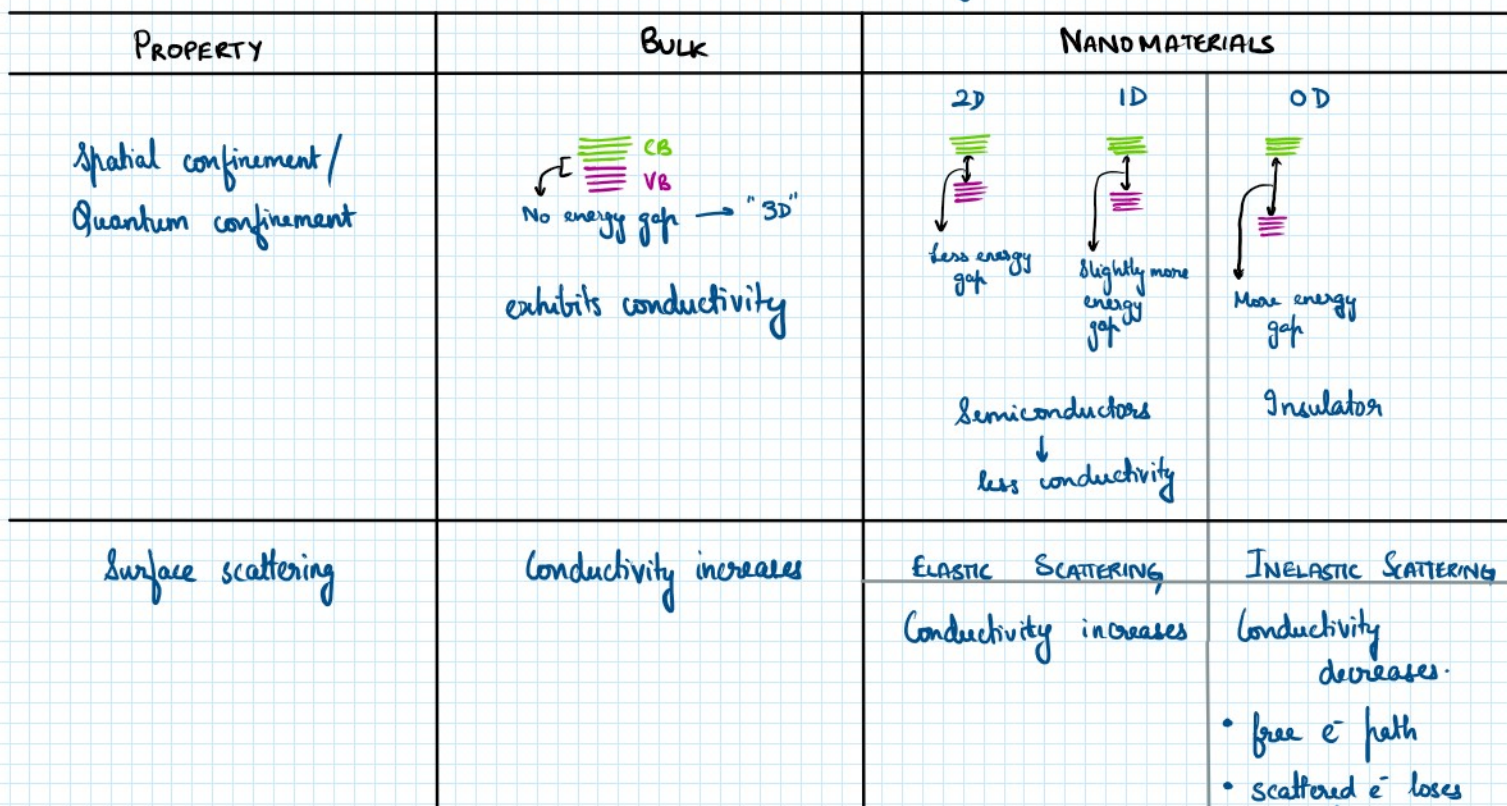 PROPERTY
BULK
NANOMATERIALS
Spatial confinement/
Quantum confinement
CB
VB
No energy gap → "3D"
exhibits conductivity
2D
1D
0D
Less energy
gap
Slightly more
energy
gap
More energy
gap
Semiconductors
↓
less conductivity
Insulator
Surface scattering
Conductivity increases
ELASTIC SCATTERING
Conductivity increases
INELASTIC SCATTERING
Conductivity
decreases.
• free e⁻ path
• scattered e⁻ loses